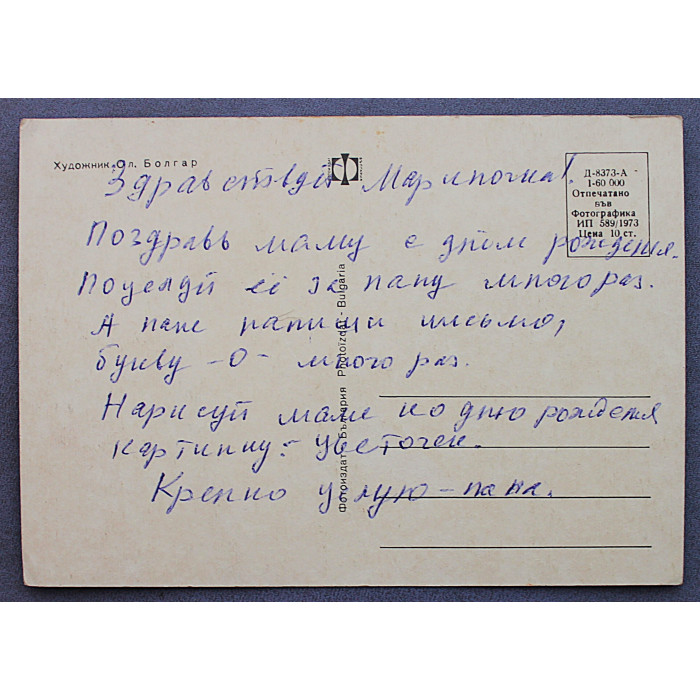 Художник Ол. Болгар
Д-8373-А
1-60 000
Отпечатано
във
Фотографика
ИП 589/1973
Цена 10 ст.
Здравствуй Мариночка!
Поздравь маму с днём рождения.
Поцелуй её за папу много раз.
А папе напиши письмо,
букву -О- много раз.
Нарисуй маме ко дню рождения
картинку: цветочек.
Крепко целую - папа.
Фотоиздат - България Photoizdat - Bulgaria